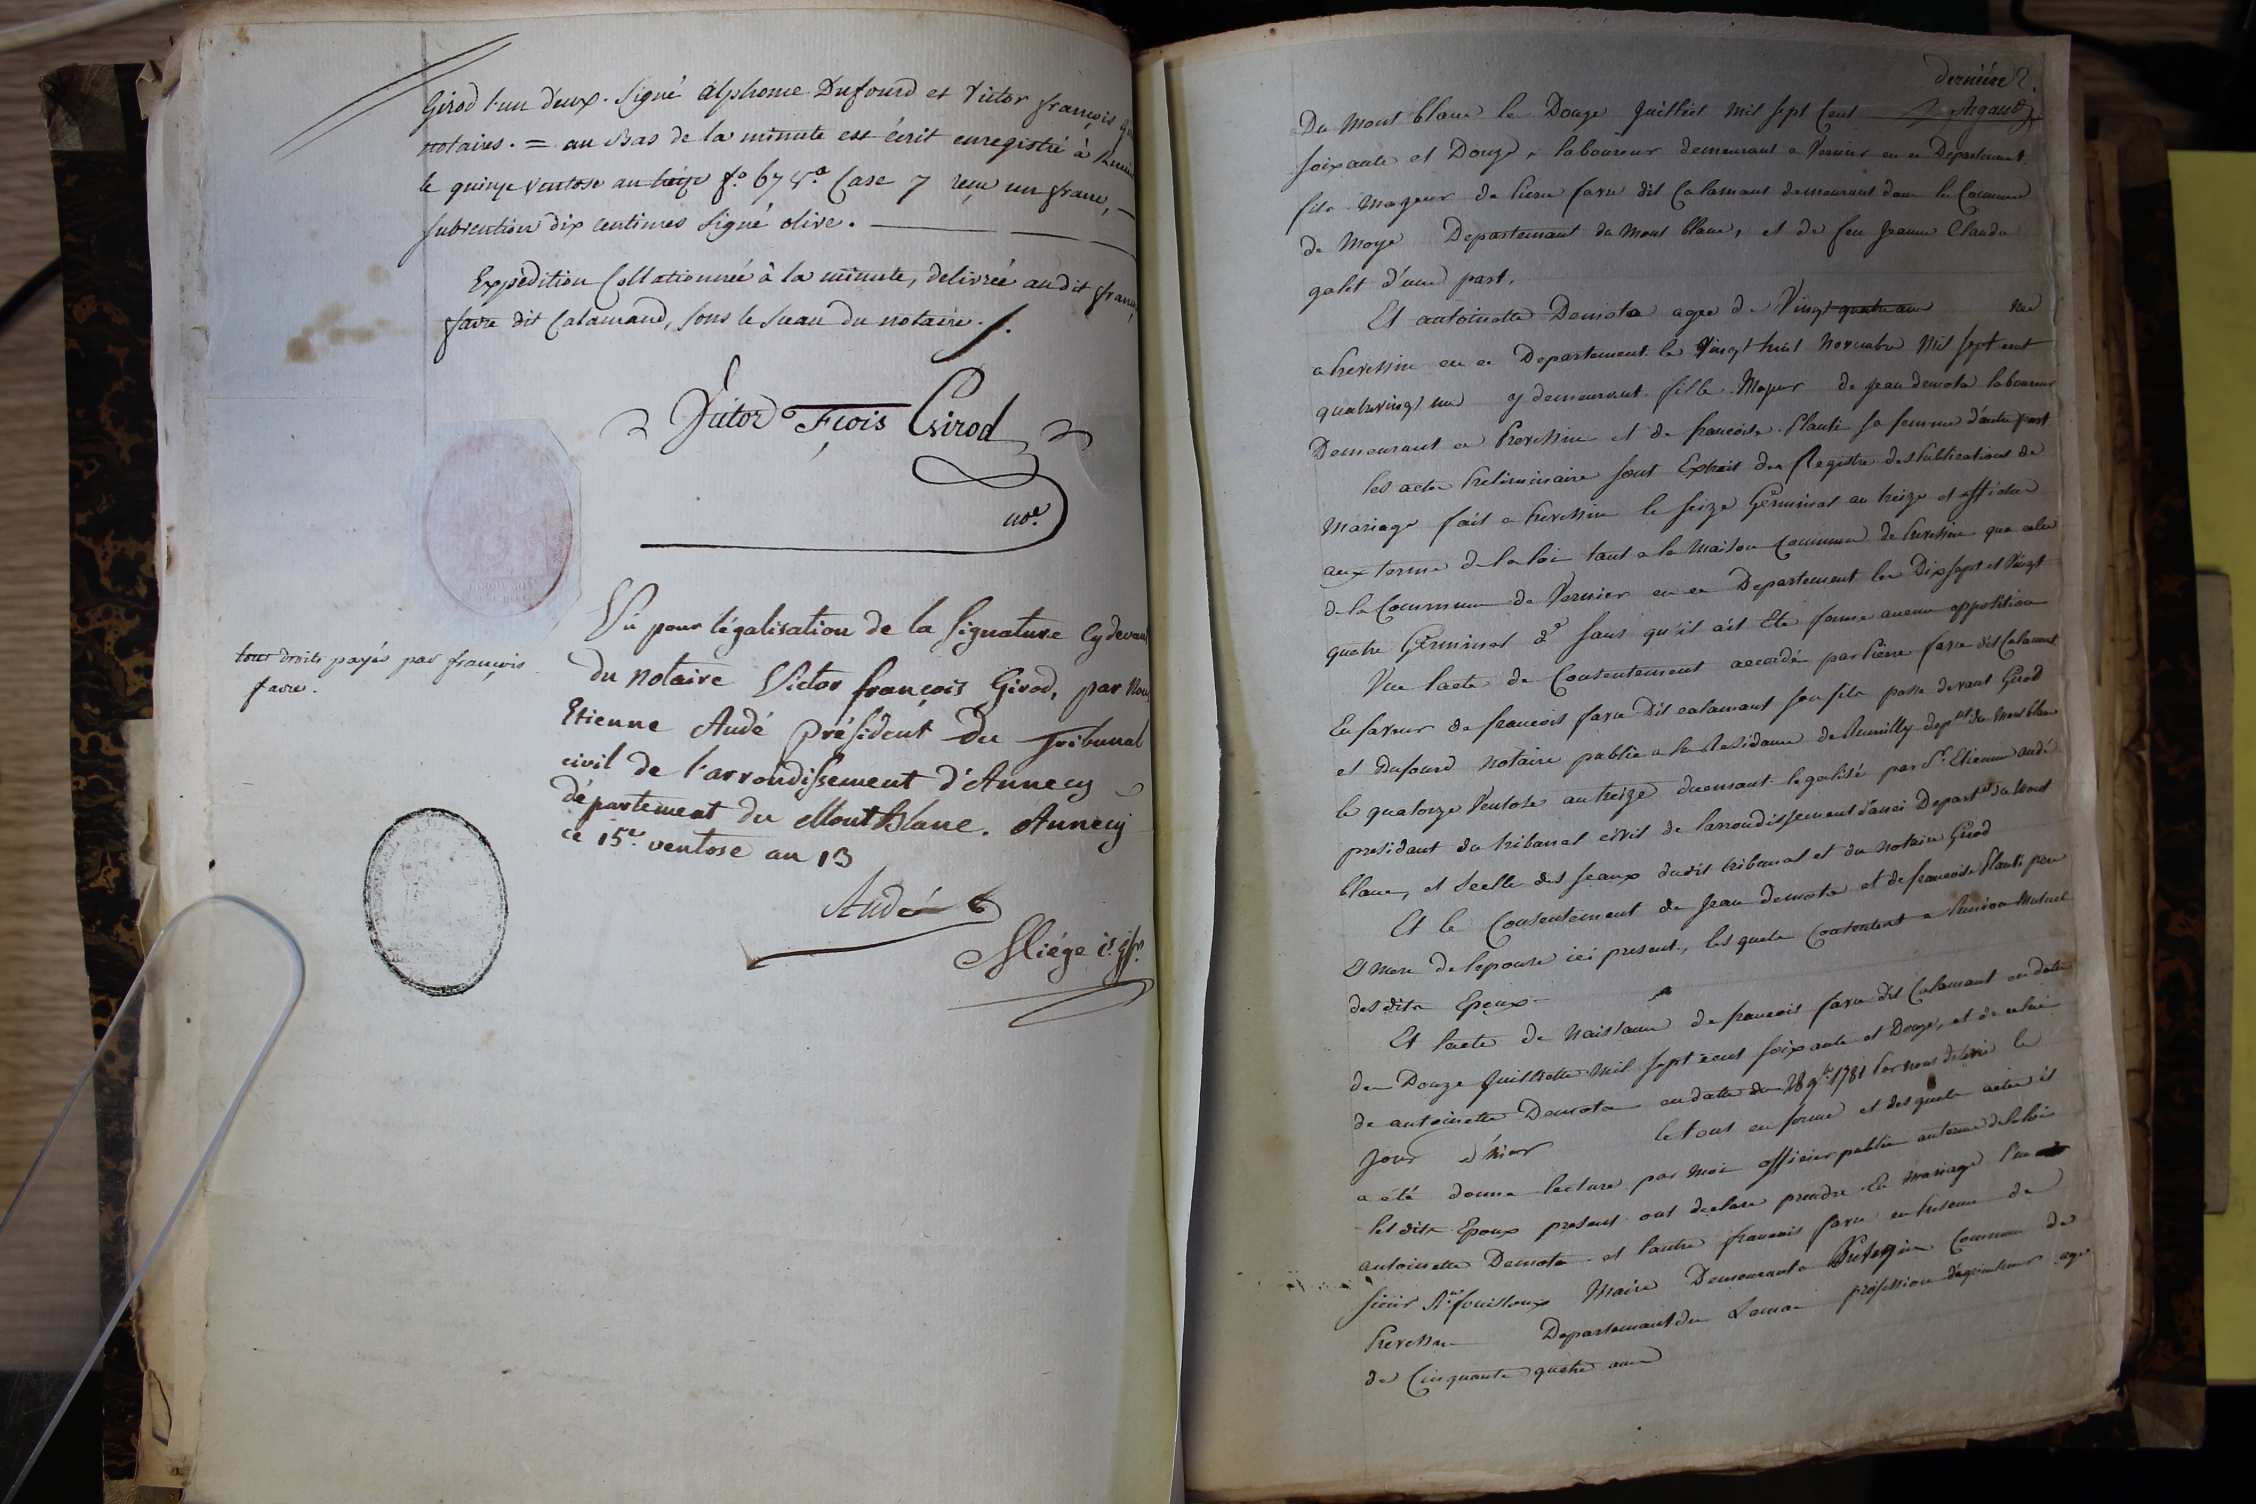 Girod l'un d'eux. Signé Alphonse Dufourd et Victor françois
notaires. = au Bas de la minute est écrit enregistré à
le quinze ventose an treize f.o 67 v.o Case 7 reçu un franc,
subvention dix centimes signé olive.
Expédition Collationnée à la minute, delivrée audit
favre dit Calamand, sous le sceau du notaire.
Victor Fçois Girod
no.e
Vu pour légalisation de la Signature Cydevant
du notaire Victor françois Girod, par Nous
Etienne Audé président du Tribunal
civil de l'arrondissement d'Annecy
département du Mont Blanc. Annecy
ce 15.e ventose an 13
tous droits payés par françois
favre.
Audé
derniére
Argand
Du Mont blanc le Douze Juilliet Mil Sept Cent
soixante et Douze, laboureur demeurant a Vernier en ce Departement
fils Majeur de pierre favre dit Calamant demeurant dans la Commune
de Moye Departemant du Mont blanc, et de feu Jeanne Clauda
galet d'une part.
Et antoinette Demota agee de Vingt quatre ans née
a prevessin en ce Departement le Vingt huit Novembre Mil sept cent
quatrevingt un y demeurant fille Majeur de jean demota laboureur
Demeurant a Prevessin et de francoise Planti sa femme d'autre part
les actes preliminaire sont Extrait des Registre des Publications de
Mariage fait a prevessin le seize Germinal an treize et affichee
aux terme de la loi tant a la Maison Commune de Prevessin que celui
de la Commune de Vernier en ce Departement les Dix sept et Vingt
quatre Germinal d.o sans qu'il ait Eté forme aucune opposition
Vue l'acte de Consentement accordée par Pierre favre dit Calamant
En faveur de francois favre Dit calamant son fils passe devant Girod
et Dufourd notaire publics a la Residance de Rumilly dep.nt du Mont blanc
le quatorze Ventose an treize duemant legalisé par S.r Etienne audé
president du tribunal civil de l'arrondissement d'anneci Depart.nt du Mont
blanc, et scelle des seaux dudit tribunal et du notaire Girod
Et le Consentement de Jean demota et de francoise Planti pere
Et mere de lepouse ici present, les quels Consentent a l'union Mutuel
des dits Epoux
Et l'acte de Naissance de francois favre dit Calamant en date
du Douze Juilliette Mil sept cent soixante et Douze, et de celui
de antoinette Demota en datte du 28 9.bre 1781 par nous delivré le
jour d'hier le tout en forme et des quels actes il
a été donné lecture par moi officier public au terme de la loi
les dits Epoux present ont declare prendre En mariage l'un
antoinette Demota et l'autre francois favre en presence de
sieur fouilloux Maire Demeurant a Commune de
Prevessin Departemant du Leman profession d'agriculteur age
de Cinquante quatre ans